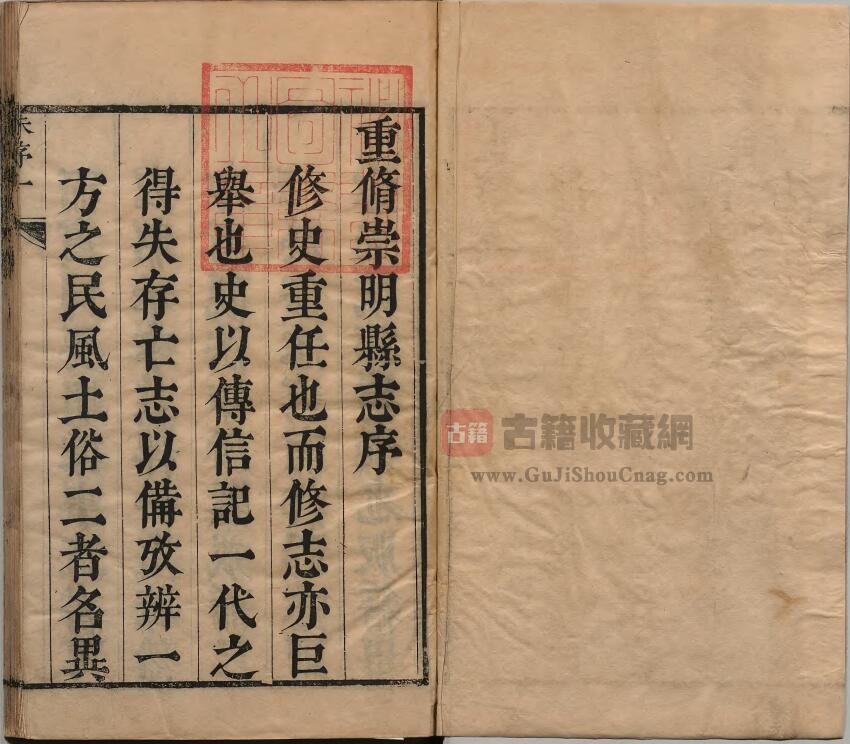 重脩崇明縣志序
修史重任也而修志亦巨
舉也史以傳信記一代之
得失存亡志以備攷辨一
方之民風土俗二者名異
序一
古籍
古籍收藏網
www.GuJiShouCnag.com